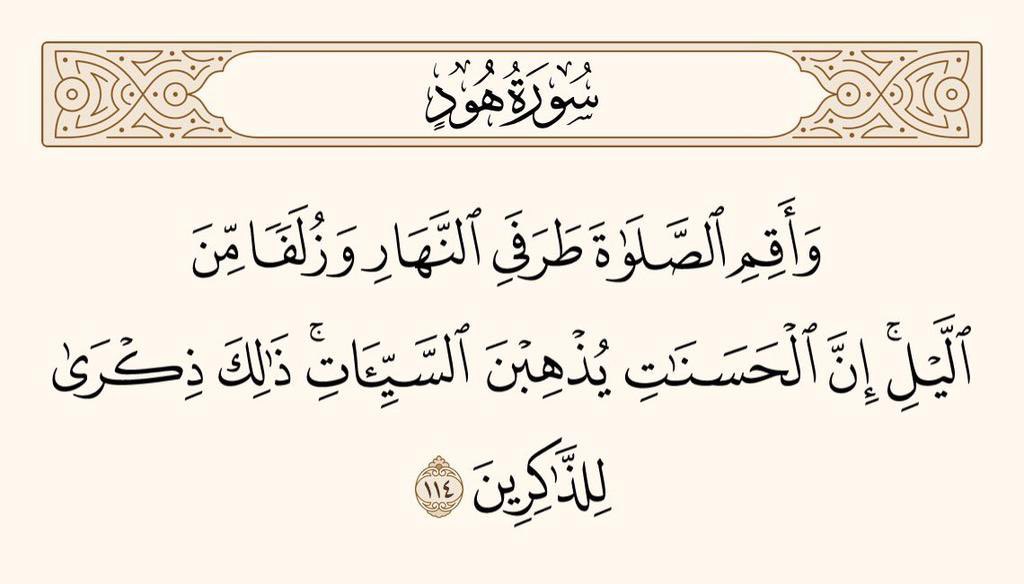 سُورَةُ هُودٍ
وَأَقِمِ ٱلصَّلَوٰةَ طَرَفَىِ ٱلنَّهَارِ وَزُلَفًا مِّنَ
ٱلَّيْلِ ۚ إِنَّ ٱلْحَسَنَٰتِ يُذْهِبْنَ ٱلسَّيِّـَٔاتِ ۚ ذَٰلِكَ ذِكْرَىٰ
لِلذَّٰكِرِينَ ١١٤